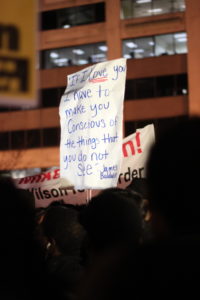 If I love you
I have to
make you
Conscious of
the things that
you do not
see"
James
Baldwin
n!
Wilson
rder